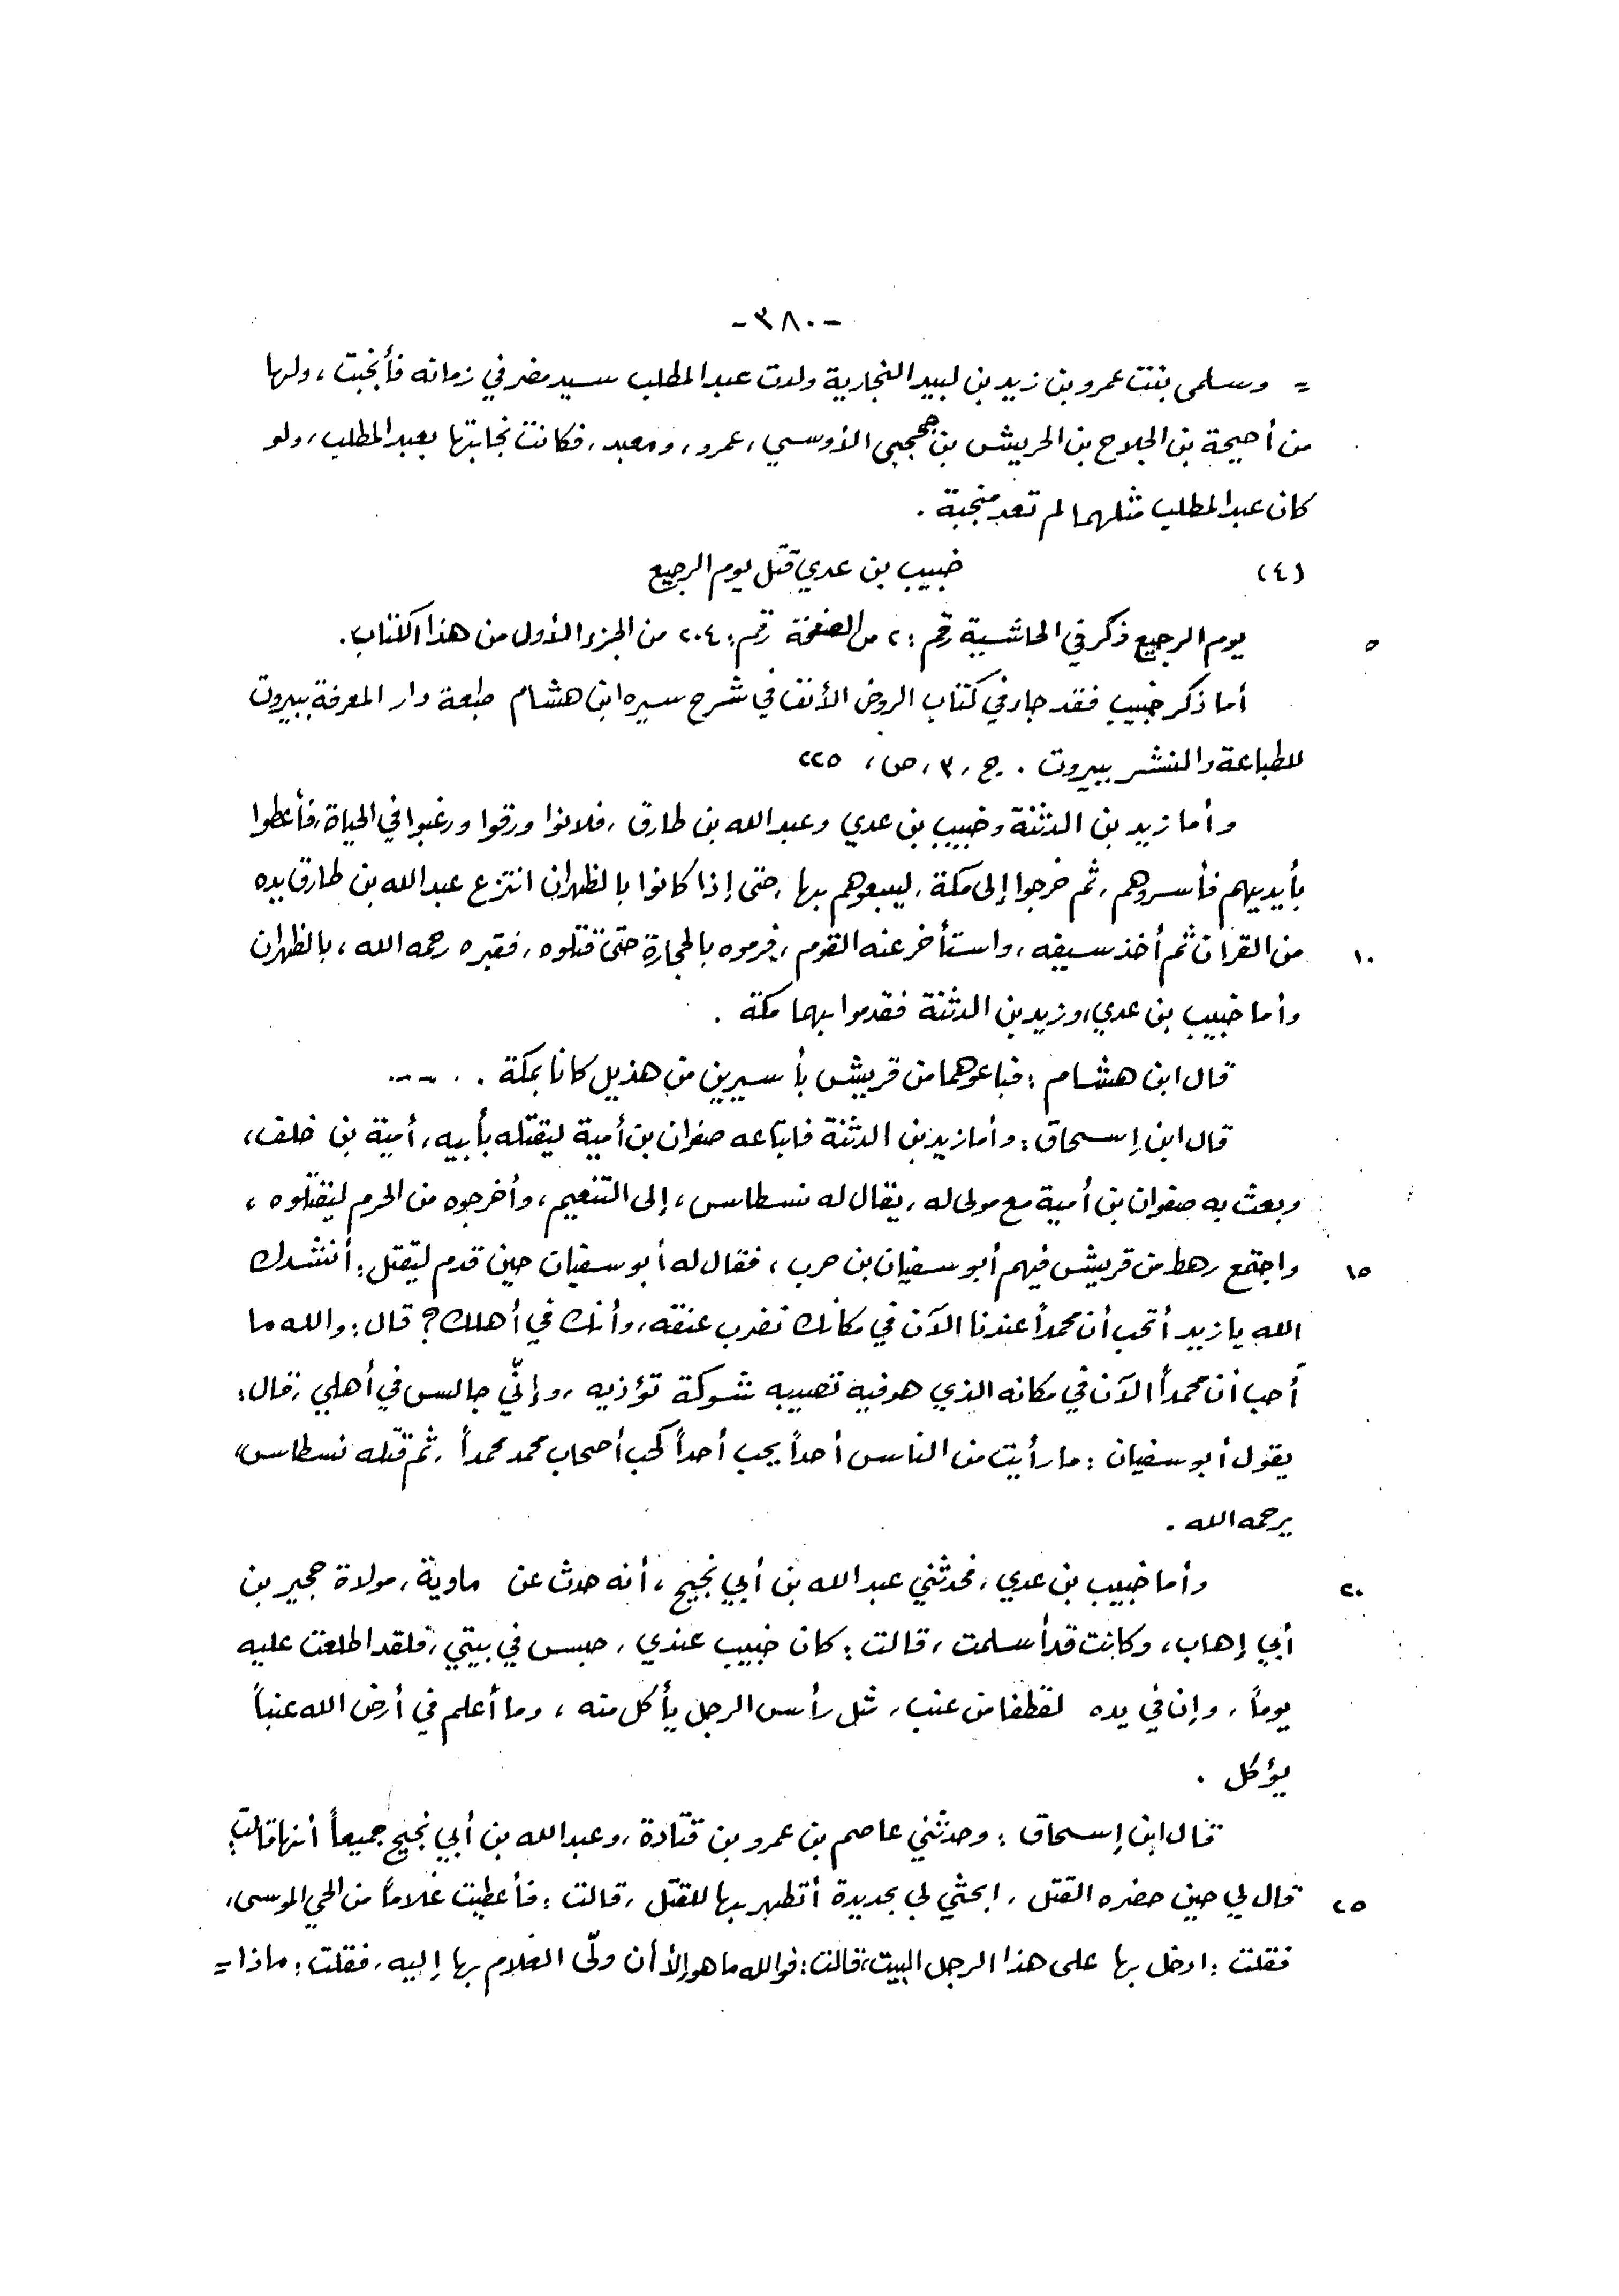 -٣٨٠-
= وسلمى بنت عمرو بن زيد بن لبيد النجارية ولدت عبد المطلب سيد مضر في زمانه فأنجبت، ولها
من أحيحة بن الجلاح بن الحريش بن جحجبى الأوسي، عمرو، ومعبد، فكانت نجابتها بعبد المطلب، ولو
كان عبد المطلب مثلهما لم تعد منجبة.
(٤) خبيب بن عدي قتل يوم الرجيع
٥ يوم الرجيع ذكر في الحاشية رقم: ٢ من الصفحة رقم: ٢٠٤ من الجزء الأول من هذا الكتاب.
أما ذكر خبيب فقد جاء في كتاب الروض الأنف في شرح سيره ابن هشام طبعة دار المعرفة ببيروت
للطباعة والنشر بيروت. ج، ٣، ص، ٢٢٥
وأما زيد بن الدثنة وخبيب بن عدي وعبد الله بن طارق، فلانوا ورقوا ورغبوا في الحياة، فأعطوا
بأيديهم فأسروهم، ثم خرجوا إلى مكة، ليبيعوهم بها، حتى إذا كانوا بالظهران انتزع عبد الله بن طارق يده
١٠ من القران ثم أخذ سيفه، واستأخر عنه القوم، فرموه بالحجارة حتى قتلوه، فقبره رحمه الله، بالظهران
وأما خبيب بن عدي، وزيد بن الدثنة فقدموا بهما مكة.
قال ابن هشام: فباعوهما من قريش بأسيرين من هذيل كانا بمكة. . ...
قال ابن إسحاق: وأما زيد بن الدثنة فابتاعه صفوان بن أمية ليقتله بأبيه، أمية بن خلف،
وبعث به صفوان بن أمية مع مولى له، يقال له نسطاس، إلى التنعيم، وأخرجوه من الحرم ليقتلوه،
١٥ واجتمع رهط من قريش فيهم أبو سفيان بن حرب، فقال له أبو سفيان حين قدم ليقتل: أنشدك
الله يا زيد أتحب أن محمداً عندنا الآن في مكانك نضرب عنقه، وأنك في أهلك؟ قال: والله ما
أحب أن محمداً الآن في مكانه الذي هو فيه تصيبه شوكة تؤذيه، وإنّي جالس في أهلي، قال:
يقول أبو سفيان: ما رأيت من الناس أحداً يحب أحداً كحب أصحاب محمد محمداً، ثم قتله نسطاس،
يرحمه الله.
٢٠ وأما خبيب بن عدي، فحدثني عبد الله بن أبي نجيح، أنه حدث عن ماوية، مولاة حجير بن
أبي إهاب، وكانت قد أسلمت، قالت: كان خبيب عندي، حبس في بيتي، فلقد اطلعت عليه
يوماً، وإن في يده لقطفا من عنب، مثل رأس الرجل يأكل منه، وما أعلم في أرض الله عنباً
يؤكل.
قال ابن إسحاق: وحدثني عاصم بن عمرو بن قتادة، وعبد الله بن أبي نجيح جميعاً أنها قالت:
٢٥ قال لي حين حضره القتل، ابعثي لي بحديدة أتطهر بها للقتل، قالت: فأعطيت غلاماً من الحي الموسى،
فقلت: ادخل بها على هذا الرجل البيت، قالت: فوالله ما هو إلا أن ولّى الغلام بها إليه، فقلت: ماذا =